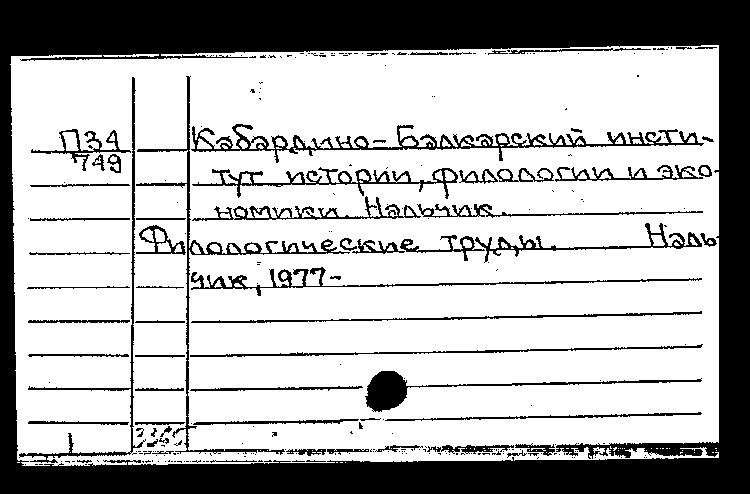 П34 Кабардино-Балкарский инсти-
749
тут истории, филологии и эко-
номики. Нальчик.
Филологические труды. Наль-
чик, 1977-
1